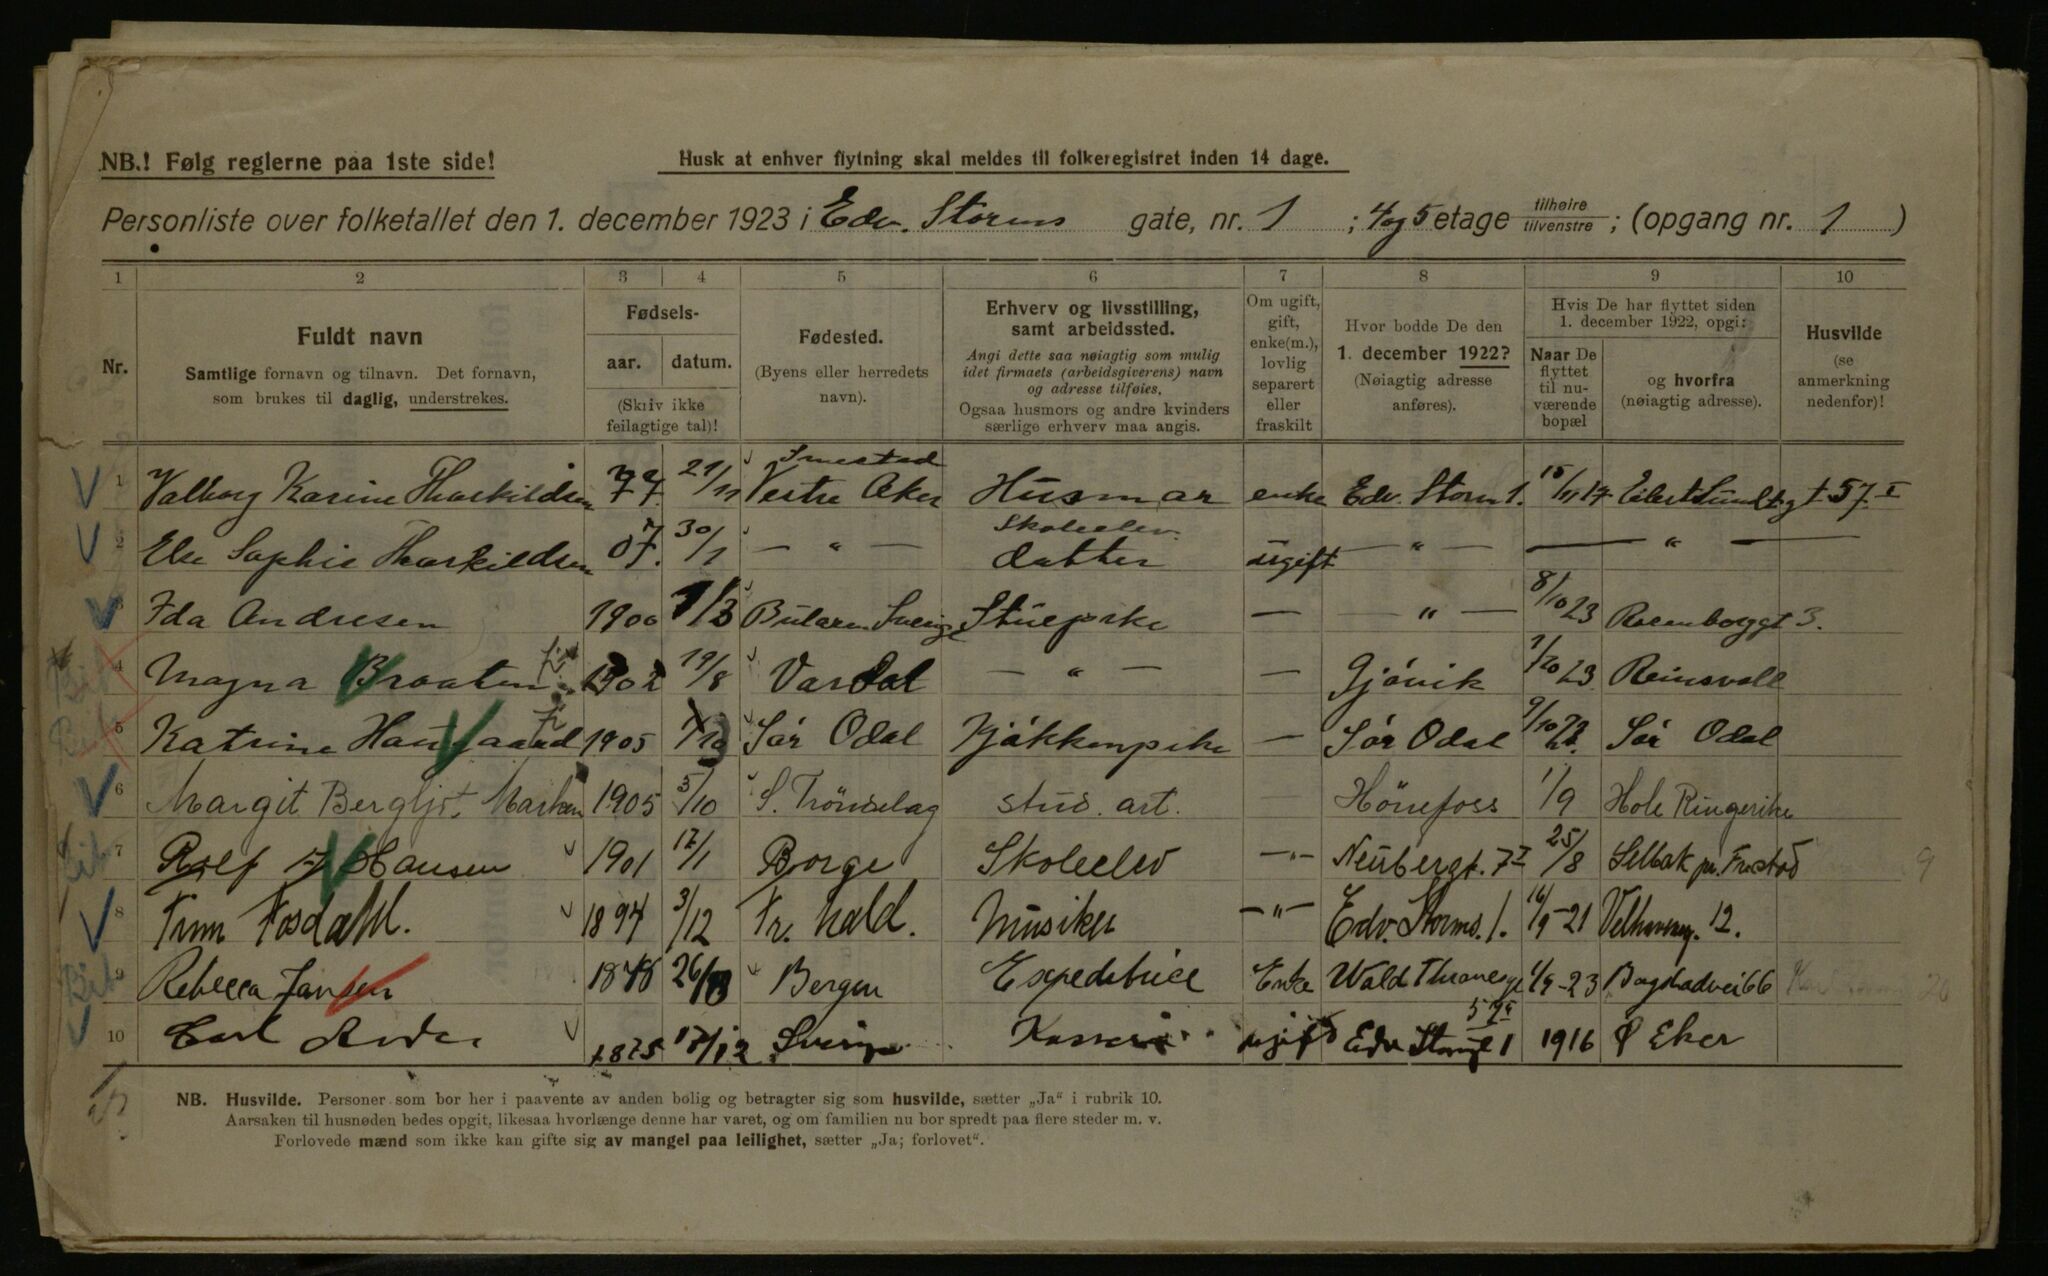 NB.! Følg reglerne paa 1ste side!
Husk at enhver flytning skal meldes til folkeregistret inden 14 dage.
Personliste over folketallet den 1. december 1923 i Edv. Storms gate, nr. 1 ; 4og 5 etage tilhøire tilvenstre ; (opgang nr. 1 )
1 2 3 4 5 6 7 8 9 10
Nr.
Fuldt navn
Samtlige fornavn og tilnavn. Det fornavn,
som brukes til daglig, understrekes.
Fødsels-
aar. datum.
(Skriv ikke
feilagtige tal)!
Fødested.
(Byens eller herredets
navn).
Erhverv og livsstilling,
samt arbeidssted.
Angi dette saa nøiagtig som mulig
idet firmaets (arbeidsgiverens) navn
og adresse tilføies.
Ogsaa husmors og andre kvinders
særlige erhverv maa angis.
Om ugift,
gift,
enke(m.),
lovlig
separert
eller
fraskilt
Hvor bodde De den
1. december 1922?
(Nøiagtig adresse
anføres).
Hvis De har flyttet siden
1. december 1922, opgi:
Naar De
flyttet
til nu-
værende
bopæl
og hvorfra
(nøiagtig adresse).
Husvilde
(se
anmerkning
nedenfor)!
Smestad
1 Valborg Karine Thorkildsen 77. 21/11 Vestre Aker Husmor enke Edv. Storm 1. 15/11 17 Eilert Sundtgt 57 I
Skoleelev.
2 Else Sophie Thorkildsen 07. 30/1 — " — datter ugift — " — — " —
3 Ida Andresen 1900 1/3 Bularen Sverige Stuepike — — " — 8/10 23 Rosenborggt 3.
4 Magna Braaten 1902 19/8 Vardal — " — — Gjövik 1/10 23 Reinsvoll
5 Katrine Haugaard 1905 /10 Sör Odal Kjökkenpike — Sör Odal 9/10 23. Sör Odal
6 Margit Bergljot 1905 5/10 S. Tröndelag stud. art. — Hönefoss 1/9 Hole Ringerike
7 Rolf Hansen 1901 17/1 Borge Skoleelev —"— Neubergt. 7 I 25/8 Selbak pr. Fr.stad
8 Finn Fosdahl. 1894 3/12 Fr. hald. Musiker —"— Edv. Storms. 1. 16/9-21 Velhaveng. 12.
9 Rebecca Jansen 1878 26/ Bergen Expeditrice Enke Wald Thranesgt 1/9-23 Bogstadvei 66
10 Carl 1875 17/12 Sverige ugift Edv Stormgt 1 1916 Ø Eker
NB. Husvilde. Personer som bor her i paavente av anden bolig og betragter sig som husvilde, sætter „Ja" i rubrik 10.
Aarsaken til husnøden bedes opgit, likesaa hvorlænge denne har varet, og om familien nu bor spredt paa flere steder m. v.
Forlovede mænd som ikke kan gifte sig av mangel paa leilighet, sætter „Ja; forlovet".